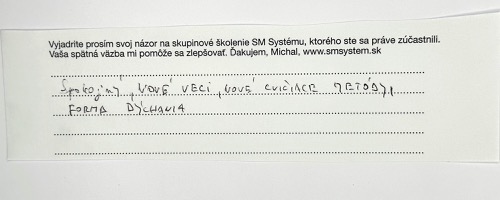 Vyjadrite prosím svoj názor na skupinové školenie SM Systému, ktorého ste sa práve zúčastnili.
Vaša spätná väzba mi pomôže sa zlepšovať. Ďakujem, Michal, www.smsystem.sk
Spokojný, NOVÉ VECI, NOVÉ CVIČIACE METÓDY,
FORMA DÝCHANIA